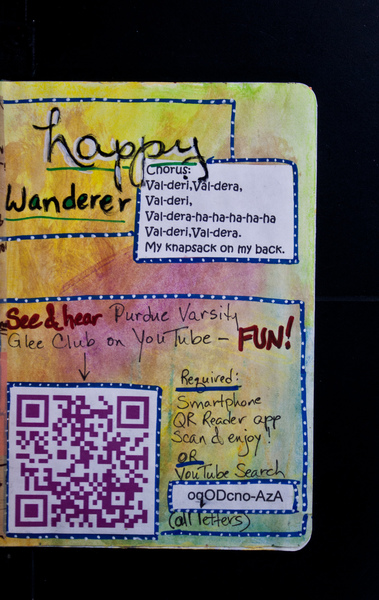 happy
Wanderer
Chorus:
Val-deri,Val-dera,
Val-deri,
Val-dera-ha-ha-ha-ha-ha
Val-deri,Val-dera.
My knapsack on my back.
See & hear Purdue Varsity
Glee Club on YouTube – FUN!
Required:
Smartphone
QR Reader app
Scan & enjoy!
OR
YouTube Search
oqODcno-AzA
(all letters)